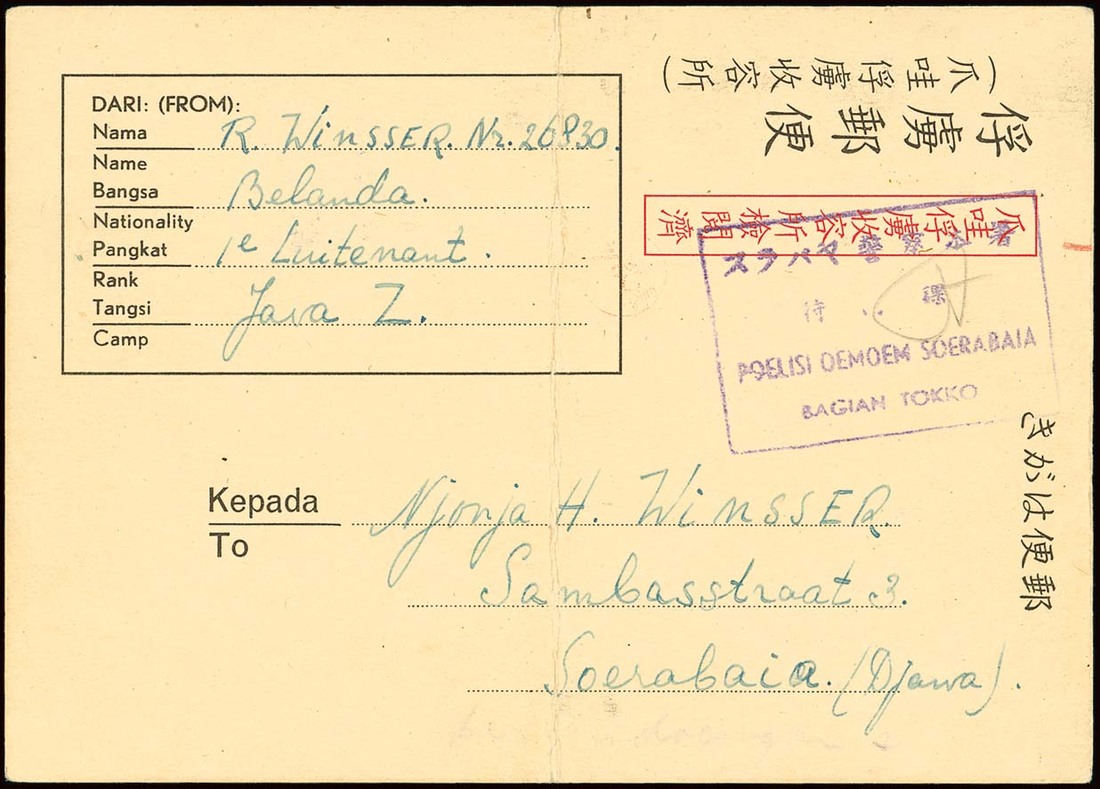 (爪哇俘虜收容所)
俘虜郵便
DARI: (FROM):
Nama R. WinssER. Nr. 26830.
Name
Bangsa Belanda.
Nationality
Pangkat 1e Luitenant.
Rank
Tangsi Java Z.
Camp
爪哇俘虜收容所檢閲濟
スラバヤ警察
課
POELISI OEMOEM SOERABAIA
BAGIAN TOKKO
郵便はがき
Kepada Njonja H. WinssER.
To
Sambasstraat 3.
Soerabaia. (Djawa).